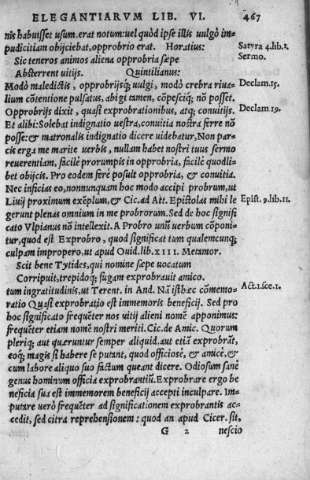 ELEGANTIARVM LIB. VI. 467
nis habuisset usum. erat notum: uel quòd ipse illis uulgò im-
pudicitiam obijciebat, opprobrio erat. Horatius: Satyra 4. lib. 1.
Sic teneros animos aliena opprobria sæpe Sermo.
Absterrent uitijs. Quintilianus:
Modò maledictis, opprobrijsq; uulgi, modò crebra riua- Declam. 15.
lium cōtentione pulsatus, abigi tamen, cōpesciq; nō posset.
Opprobrijs dixit, quasi exprobrationibus, atq; conuitijs. Declam. 19.
Et alibi: Solebat indignatio uestra, conuitia nostra ferre nō
posse: & matronalis indignatio dicere uidebatur, Non par-
cis erga me marite uerbis, nullam habet nostri tuus sermo
reuerentiam, facilè prorumpis in opprobria, facilè quodli-
bet obijcis. Pro eodem ferè posuit opprobria, & conuitia.
Nec inficias eo, nonnunquam hoc modo accipi probrum, ut
Liuij proximum exēplum, & Cic. ad Att. Epistolas mihi le Epist. 9. lib. 11.
gerunt plenas omnium in me probrorum. Sed de hoc signifi
cato Vlpianus nō intellexit. A Probro unū uerbum cōponi-
tur, quod est Exprobro, quod significat tum qualemcunq;
culpam impropero, ut apud Ouid. lib. XIII. Metamor.
Scit bene Tytides, qui nomine sæpe uocatum
Corripuit, trepidoq; fugam exprobrauit amico.
tum ingratitudinis, ut Terent. in And. Nā isthæc cōmemo- Act. 1. sce. 1.
ratio Quasi exprobratio est immemoris beneficij. Sed pro
hoc significato frequēter nos uitij alieni nomē apponimus:
frequēter etiam nomē nostri meriti. Cic. de Amic. Quorum
pleriq; aut quæruntur semper aliquid. aut etiā exprobrāt,
eoq; magis si habere se putant, quod officiosè, & amicè, & 
cum labore aliquo suo factum queant dicere. Odiosum sanè
genus hominum officia exprobrantiū. Exprobrare ergo be
neficia sua est immemorem beneficij accepti inculpare. Im-
putare uerò frequēter ad significationem exprobrantis ac-
cedit, sed citra reprehensionem: quod an apud Cicer. sit,
G 2 nescio